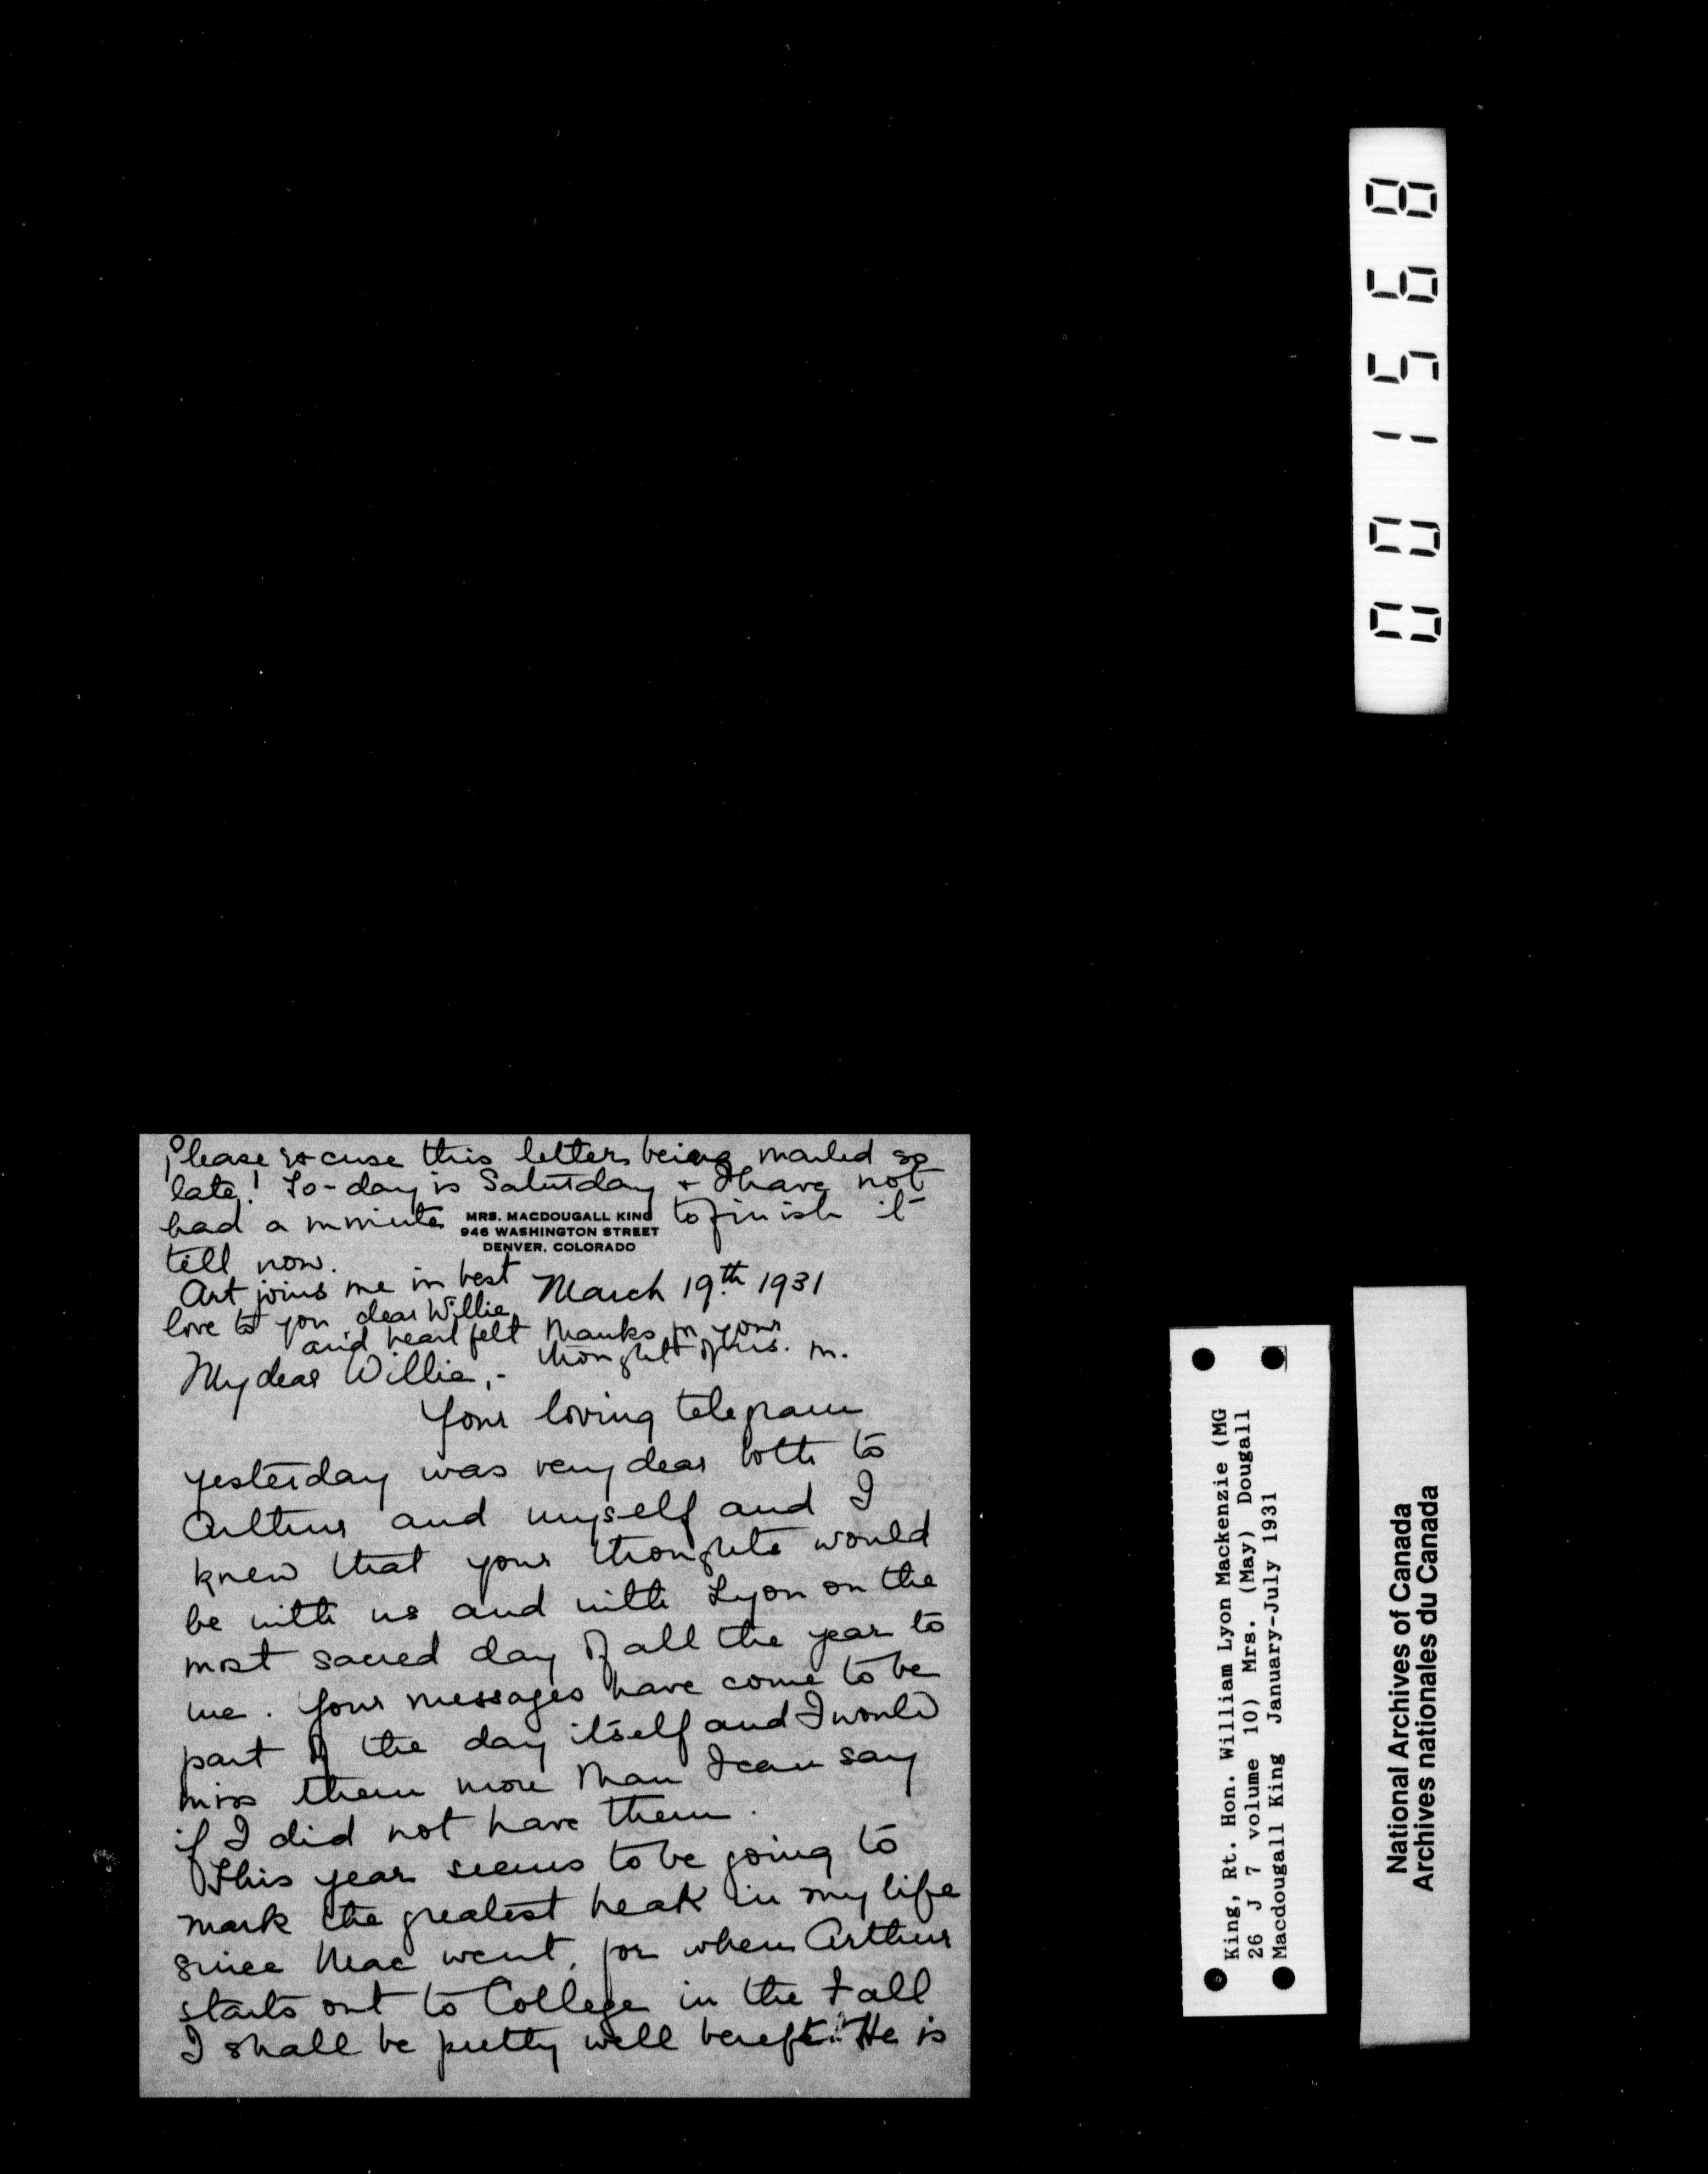 Please excuse this letter being mailed so
late! To-day is Saturday + I have not
had a minute to finish it
till now.
Art joins me in best
love to you dear Willie
and heartfelt thanks for your
thought of us. M.
MRS. MACDOUGALL KING
946 WASHINGTON STREET
DENVER, COLORADO
March 19th 1931
My dear Willie,-
Your loving telegram
yesterday was very dear both to
Arthur and myself and I
knew that your thoughts would
be with us and with Lyon on the
most sacred day of all the year to
me. Your messages have come to be
part of the day itself and I would
miss them more than I can say
if I did not have them.
This year seems to be going to
mark the greatest break in my life
since Mac went, for when Arthur
starts out to College in the Fall
I shall be pretty well bereft. He is
001568
King, Rt. Hon. William Lyon Mackenzie (MG
26 J 7 volume 10) Mrs. (May) Dougall
Macdougall King January-July 1931
National Archives of Canada
Archives nationales du Canada